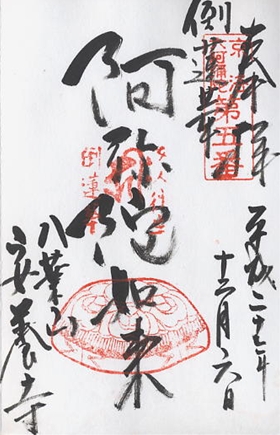 奉拝
倒蓮華
第五番
阿弥陀如来
倒蓮華
平成二十二年
十二月六日
八葉山
安養寺